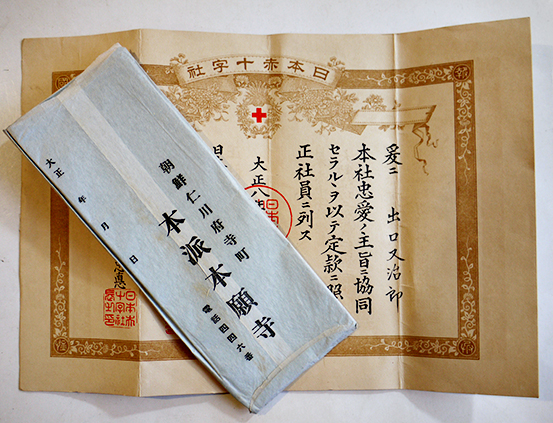 社字十赤本日
爰ニ 出口又治郎
本社忠愛ノ主旨ニ協同
セラルヽヲ以テ定款ニ照
正社員ニ列ス
大正八年
日本
日本赤
十字社
長之印
朝鮮仁川府寺町
本派本願寺
電話四四六番
大正 年 月 日